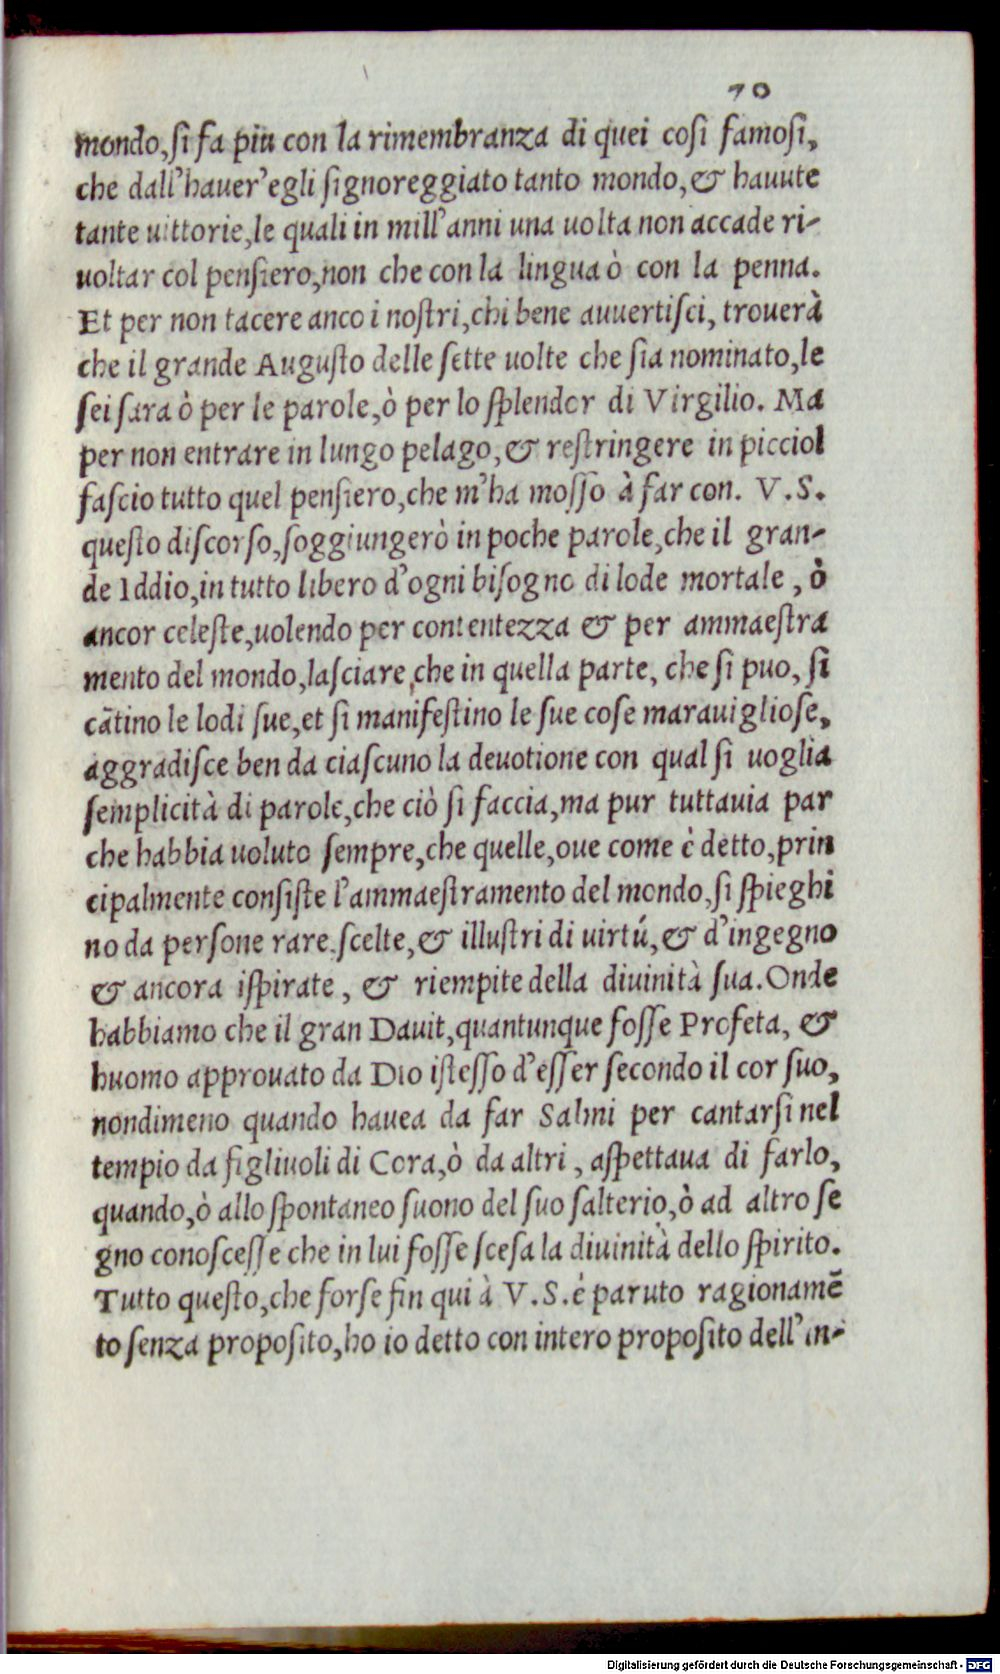 70
mondo, si fa piu con la rimembranza di quei cosi famosi,
che dall'hauer'egli signoreggiato tanto mondo, & hauute
tante uittorie, le quali in mill'anni una uolta non accade ri-
uoltar col pensiero, non che con la lingua ò con la penna.
Et per non tacere anco i nostri, chi bene auuertisci, trouerà
che il grande Augusto delle sette uolte che sia nominato, le
sei sara ò per le parole, ò per lo splendor di Virgilio. Ma
per non entrare in lungo pelago, & restringere in picciol
fascio tutto quel pensiero, che m'ha mosso à far con. V.S.
questo discorso, soggiungerò in poche parole, che il gran-
de Iddio, in tutto libero d'ogni bisogno di lode mortale, ò
ancor celeste, uolendo per contentezza & per ammaestra
mento del mondo, lasciare, che in quella parte, che si puo, si
cātino le lodi sue, et si manifestino le sue cose marauigliose,
aggradisce ben da ciascuno la deuotione con qual si uoglia
semplicità di parole, che ciò si faccia, ma pur tuttauia par
che habbia uoluto sempre, che quelle, oue come è detto, prin
cipalmente consiste l'ammaestramento del mondo, si spieghi
no da persone rare. scelte, & illustri di uirtú, & d'ingegno
& ancora ispirate, & riempite della diuinità sua. Onde
habbiamo che il gran Dauit, quantunque fosse Profeta, &
huomo approuato da Dio istesso d'esser secondo il cor suo,
nondimeno quando hauea da far Salmi per cantarsi nel
tempio da figliuoli di Cora, ò da altri, aspettaua di farlo,
quando, ò allo spontaneo suono del suo salterio, ò ad altro se
gno conoscesse che in lui fosse scesa la diuinità dello spirito.
Tutto questo, che forse fin qui à V.S. è paruto ragionamē
to senza proposito, ho io detto con intero proposito dell'in-
Digitalisierung gefördert durch die Deutsche Forschungsgemeinschaft - DFG